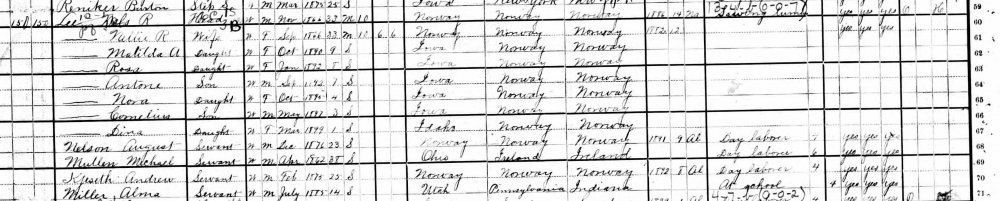 Reniker Burton Step S W M Mar 1875 25 S Iowa New York
157 157 Lee, Nels R Head B W M Nov 1866 33 M 10 Norway Norway Norway 1886 14 Na 59
Hallie R Wife W F Sep 1866 33 M 10 6 6 Norway Norway Norway 1882 yes yes yes 60
Matilda A Daught W F Oct 1890 9 S Iowa Norway Norway 61
Rosa Daught W F Jan 1892 8 S Iowa Norway Norway 62
Antone Son W M Sep 1892 7 S Iowa Norway Norway 63
Nora Daught W F Oct 1895 4 S Iowa Norway Norway 64
Cornelius Son W M May 1897 3 S Iowa Norway Norway 65
Dina Daught W F Mar 1899 1 S Idaho Norway Norway 66
Nelson August Servant W M Dec 1876 23 S Norway Norway Norway 1891 9 Al Day laborer yes yes yes
Mullen Michael Servant W M Apr 1862 38 S Ohio Ireland Ireland Day laborer 6 yes yes yes 68
Kjeseth Andrew Servant W M Feb 1875 25 S Norway Norway Norway 1892 8 Al Day laborer 4 yes yes yes 69
Miller, Alma Servant W M July 1885 14 S Utah Pennsylvania Indiana At school 4 yes yes yes 70
71